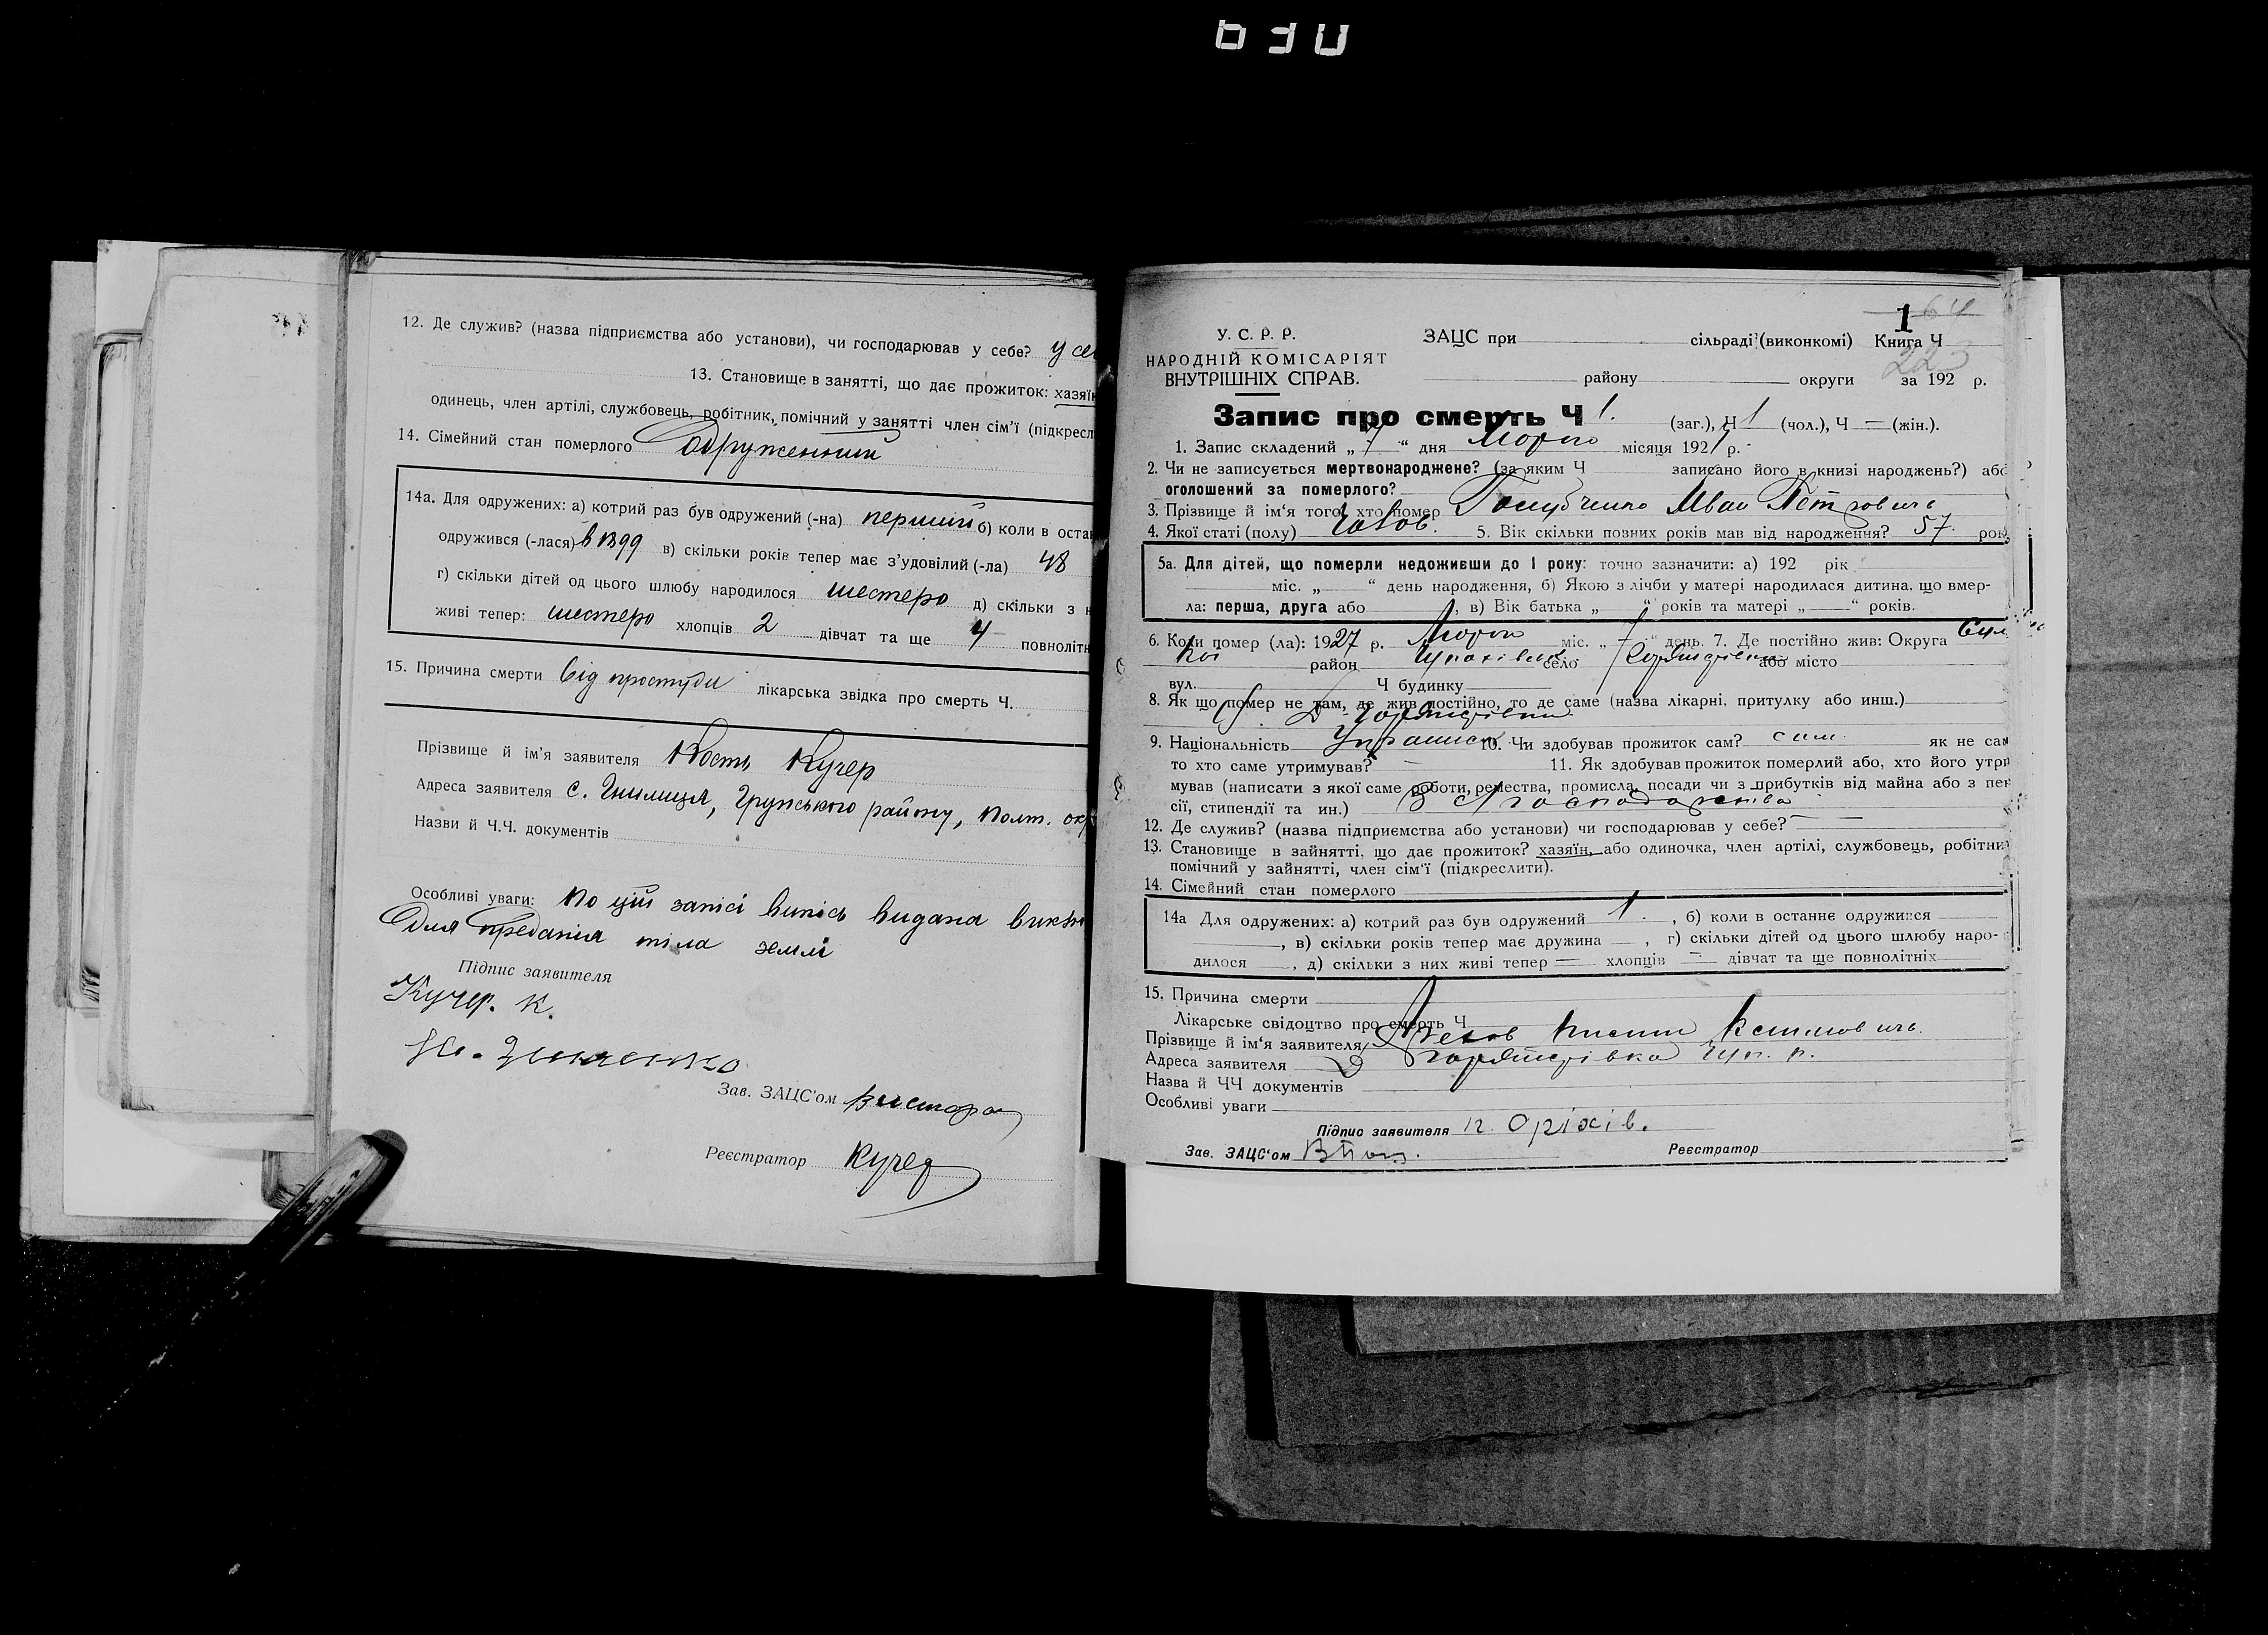 12. Де служив? (назва підприємства або установи), чи господарював у себе? у се
13. Становище в занятті, що дає прожиток: хазяїн
одинець, член артілі, службовець, робітник, помічний у занятті член сім’ї (підкресл
14. Сімейний стан померлого Одруженний
14а. Для одружених: а) котрий раз був одружений (-на) перший б) коли в остан
одружився (-лася) в 1899 в) скільки років тепер має з’удовілий (-ла) 48
г) скільки дітей од цього шлюбу народилося шестеро д) скільки з н
живі тепер: шестеро хлопців 2 дівчат та ще 4 повнолітн
15. Причина смерти від простуди лікарська звідка про смерть Ч.
Прізвище й ім’я заявителя Кость Кучер
Адреса заявителя с. Гнилиця, Грунського району, Полт. окр
Назви й Ч.Ч. документів
Особливі уваги: По цій запісі випісь видана
для предания тіла землі
Підпис заявителя
Кучер. К.
Зав. ЗАЦС’ом
Реєстратор Кучер
1 64
У. С. Р. Р. ЗАЦС при сільраді (виконкомі) Книга Ч
НАРОДНІЙ КОМІСАРІЯТ 223
ВНУТРІШНІХ СПРАВ. району округи за 192 р.
Запис про смерть Ч 1. (заг.), Ч 1 (чол.), Ч — (жін.).
1. Запис складений „ 7 “ дня Морто місяця 1927 р.
2. Чи не записується мертвонароджене? (за яким Ч записано його в книзі народжень?) або
оголошений за померлого?
3. Прізвище й ім‘я того, хто помер Иван Петрович
4. Якої статі (полу) Чолов. 5. Вік скільки повних років мав від народження? 57 рок
5а. Для дітей, що померли недоживши до 1 року: точно зазначити: а) 192 рік
міс. „ — “ день народження, б) Якою з лічби у матері народилася дитина, що вмер-
ла: перша, друга або , в) Вік батька „ “ років та матері „ — “ років.
6. Коли помер (ла): 1927 р. Морто міс. „ 7 “ день. 7. Де постійно жив: Округа
район село або місто
вул. Ч будинку
8. Як що помер не там, де жив постійно, то де саме (назва лікарні, притулку або инш.)
9. Національність 10. Чи здобував прожиток сам? сам як не сам
то хто саме утримував? — 11. Як здобував прожиток померлий або, хто його утри
мував (написати з якої саме роботи, ремества, промисла, посади чи з прибутків від майна або з пен
сії, стипендії та ин.) З с/господарства
12. Де служив? (назва підприємства або установи) чи господарював у себе? —
13. Становище в зайнятті, що дає прожиток? хазяїн, або одиночка, член артілі, службовець, робітни
помічний у зайнятті, член сім‘ї (підкреслити).
14. Сімейний стан померлого
14а Для одружених: а) котрий раз був одружений 1. , б) коли в останнє одружився
, в) скільки років тепер має дружина — , г) скільки дітей од цього шлюбу наро-
дилося — , д) скільки з них живі тепер — хлопців — дівчат та ще повнолітніх
15. Причина смерти
Лікарське свідоцтво про смерть Ч
Прізвище й ім‘я заявителя
Адреса заявителя
Назва й ЧЧ документів
Особливі уваги
Підпис заявителя Оріхів.
Зав. ЗАЦС‘ом Реєстратор